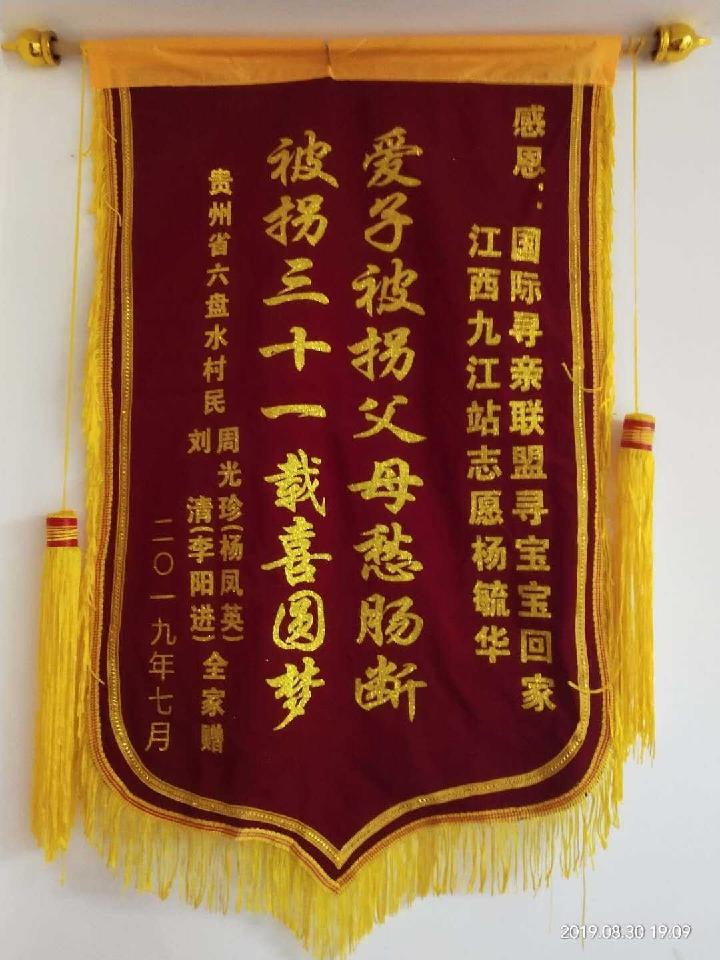 感恩：国际寻亲联盟寻宝宝回家
江西九江站志愿杨毓华
爱子被拐父母愁肠断
被拐三十一载喜圆梦
贵州省六盘水村民
周光珍(杨凤英)
刘清(李阳进)
全家赠
二〇一九年七月
2019.08.30 19:09